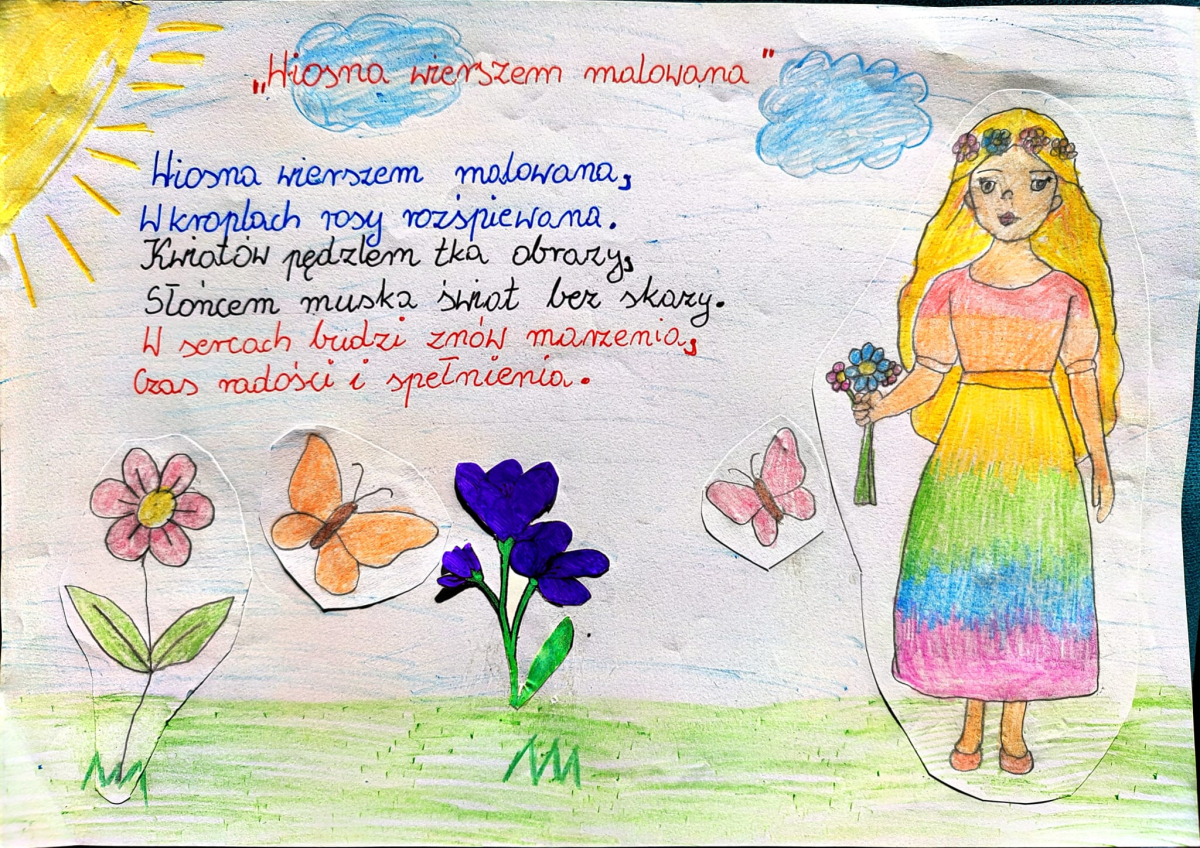 „Wiosna wierszem malowana"
Wiosna wierszem malowana,
W kroplach rosy rozśpiewana.
Kwiatów pędzlem tka obrazy,
Słońcem muska świat bez skazy.
W sercach budzi znów marzenia,
Czas radości i spełnienia.